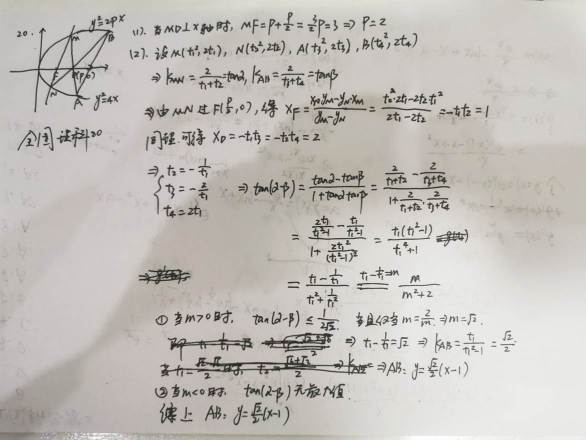 20.
y²=2px
B
M
F
D(p,0)
N
A
y²=4x
全国 证 20
(1). 当MD⊥x轴时, MF=p+p/2=3/2p=3 ⇒ p=2
(2). 设M(t₁²,2t₁), N(t₂²,2t₂), A(t₃²,2t₃), B(t₄²,2t₄)
⇒ k_MN=2/(t₁+t₂)=tanα, k_AB=2/(t₃+t₄)=tanβ
⇒由MN过F(1,0), 得 x_F=(x_M y_N-y_M x_N)/(y_M-y_N)=(t₂²·2t₁-2t₂t₁²)/(2t₁-2t₂)=-t₁t₂=1
同理可得 x_D=-t₁t₃=-t₂t₄=2
⇒ { t₂=-1/t₁
t₃=-2/t₁
t₄=2t₁
⇒ tan(α-β)=(tanα-tanβ)/(1+tanαtanβ)=(2/(t₁+t₂)-2/(t₃+t₄))/(1+2/(t₁+t₂)·2/(t₃+t₄))
=(2t₁/(t₁²-1)-t₁/(t₁²-1))/(1+2t₁²/(t₁²-1)²)=t₁(t₁²-1)/(t₁⁴+1)
=(t₁-1/t₁)/(t₁²+1/t₁²) t₁-1/t₁=m = m/(m²+2)
① 当m>0时, tan(α-β)≤1/(2√2), 当且仅当m=2/m, ⇒m=√2.
⇒ t₁-1/t₁=√2 ⇒ k_AB=t₁/(t₁²-1)=√2/2
⇒AB: y=√2/2(x-1)
② 当m<0时, tan(α-β)无最大值.
综上 AB: y=√2/2(x-1)